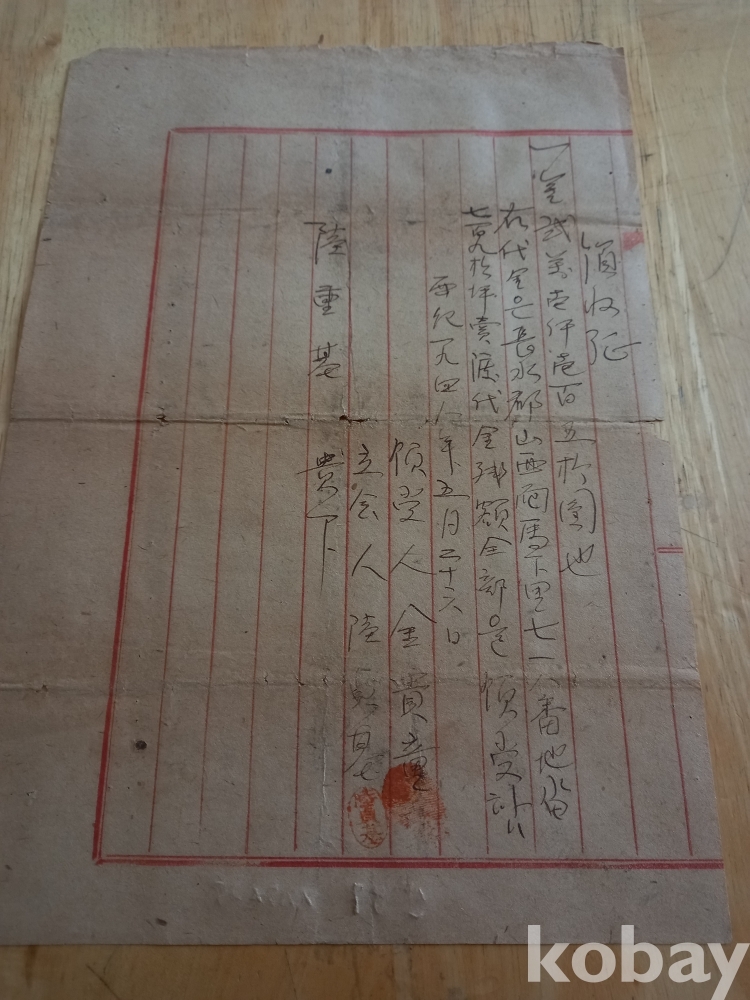 領收証
一金貳萬壱仟壱百五拾圓也
右代金은長水郡山西面馬下里七一八番地畓
七百九拾坪賣渡代金殘額全部을領受함
西紀一九四八年五月二十六日
領受人 金貴童
立会人 陸 基
陸重基 貴下
kobay